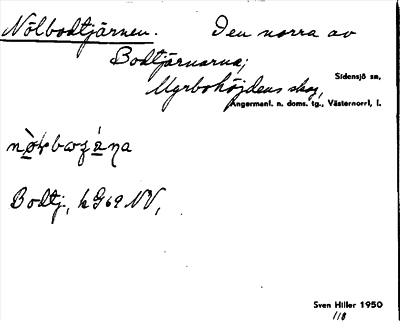 Nölbodtjärnen. Den norra av
Bodtjärnarna;
Myrbohöjdens skog,
Sidensjö sn,
Ångermanl. n. doms. tg., Västernorrl, l.
Bodtj, k G69 NV,
Sven Hiller 1950
118